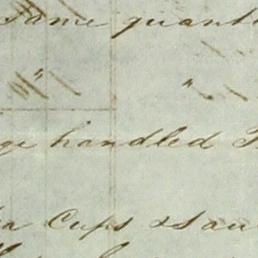 some quanti
" "
ge handled
a Cups & Sau